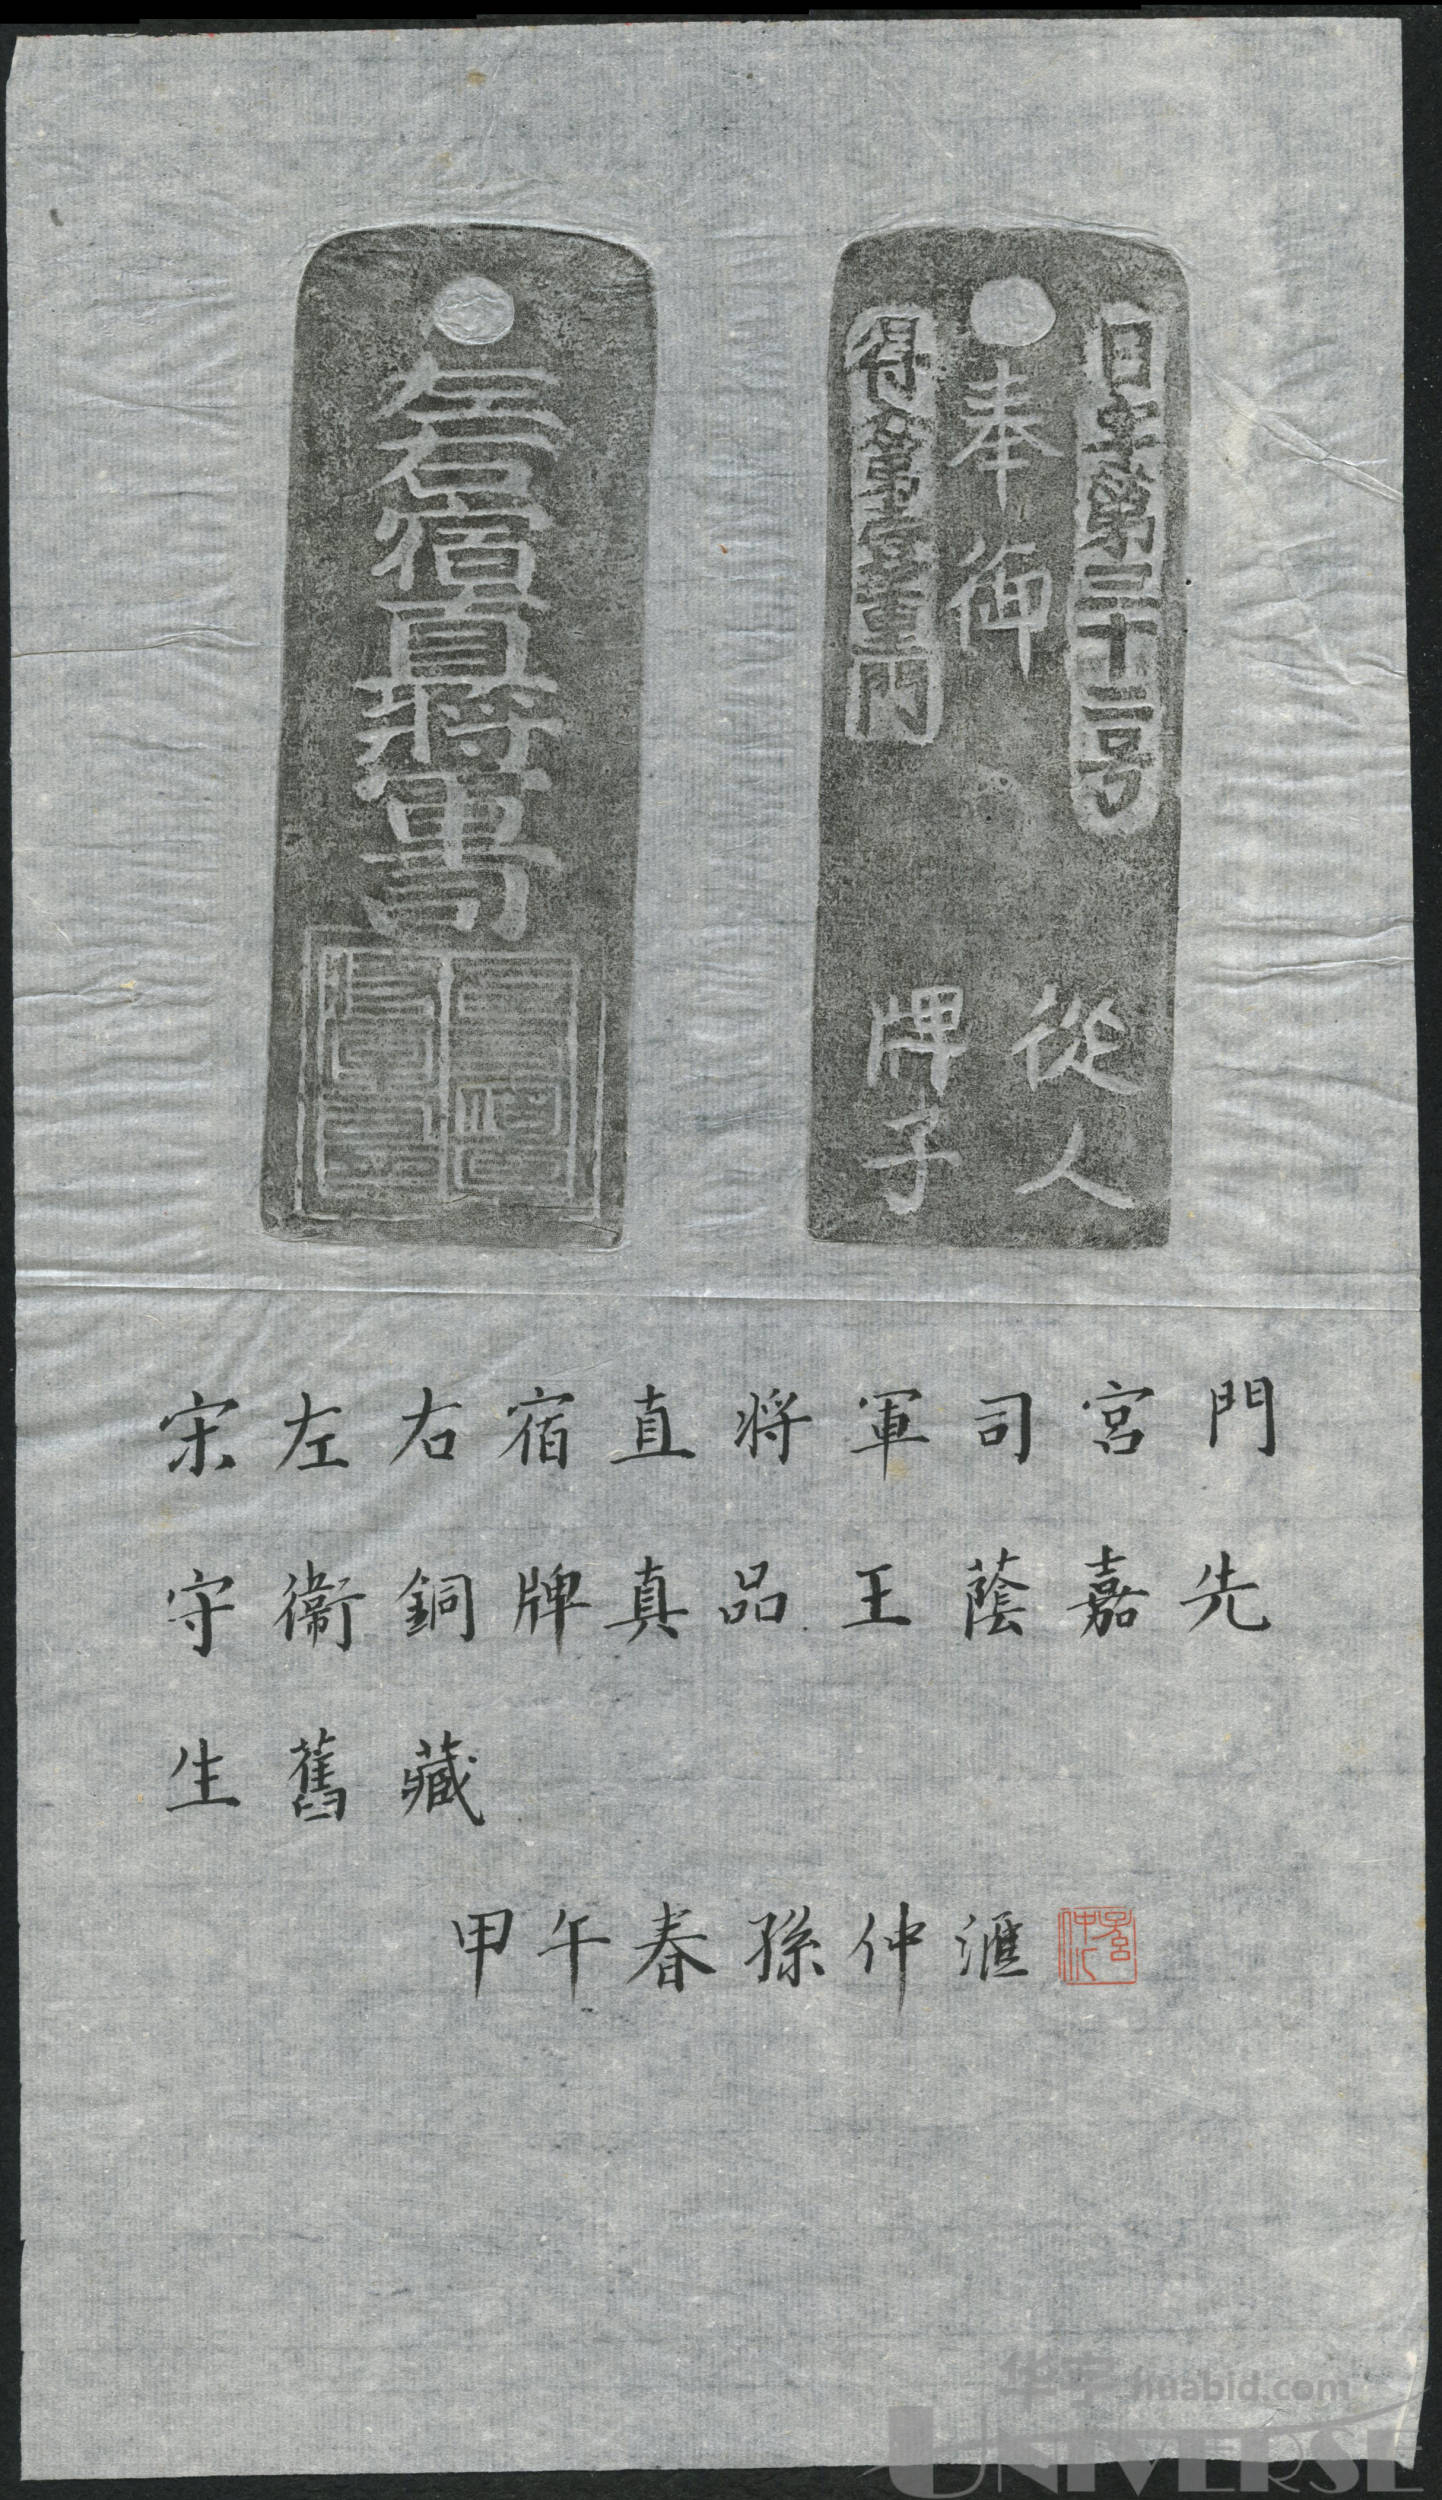 日字第三十二号
奉御
得第壹重門
從人
牌子
左右宿直將軍
宋左右宿直將軍司宮門
守衞銅牌真品王蔭嘉先
生舊藏
甲午春孫仲滙
华宇 huabid.com
UNIVERSE